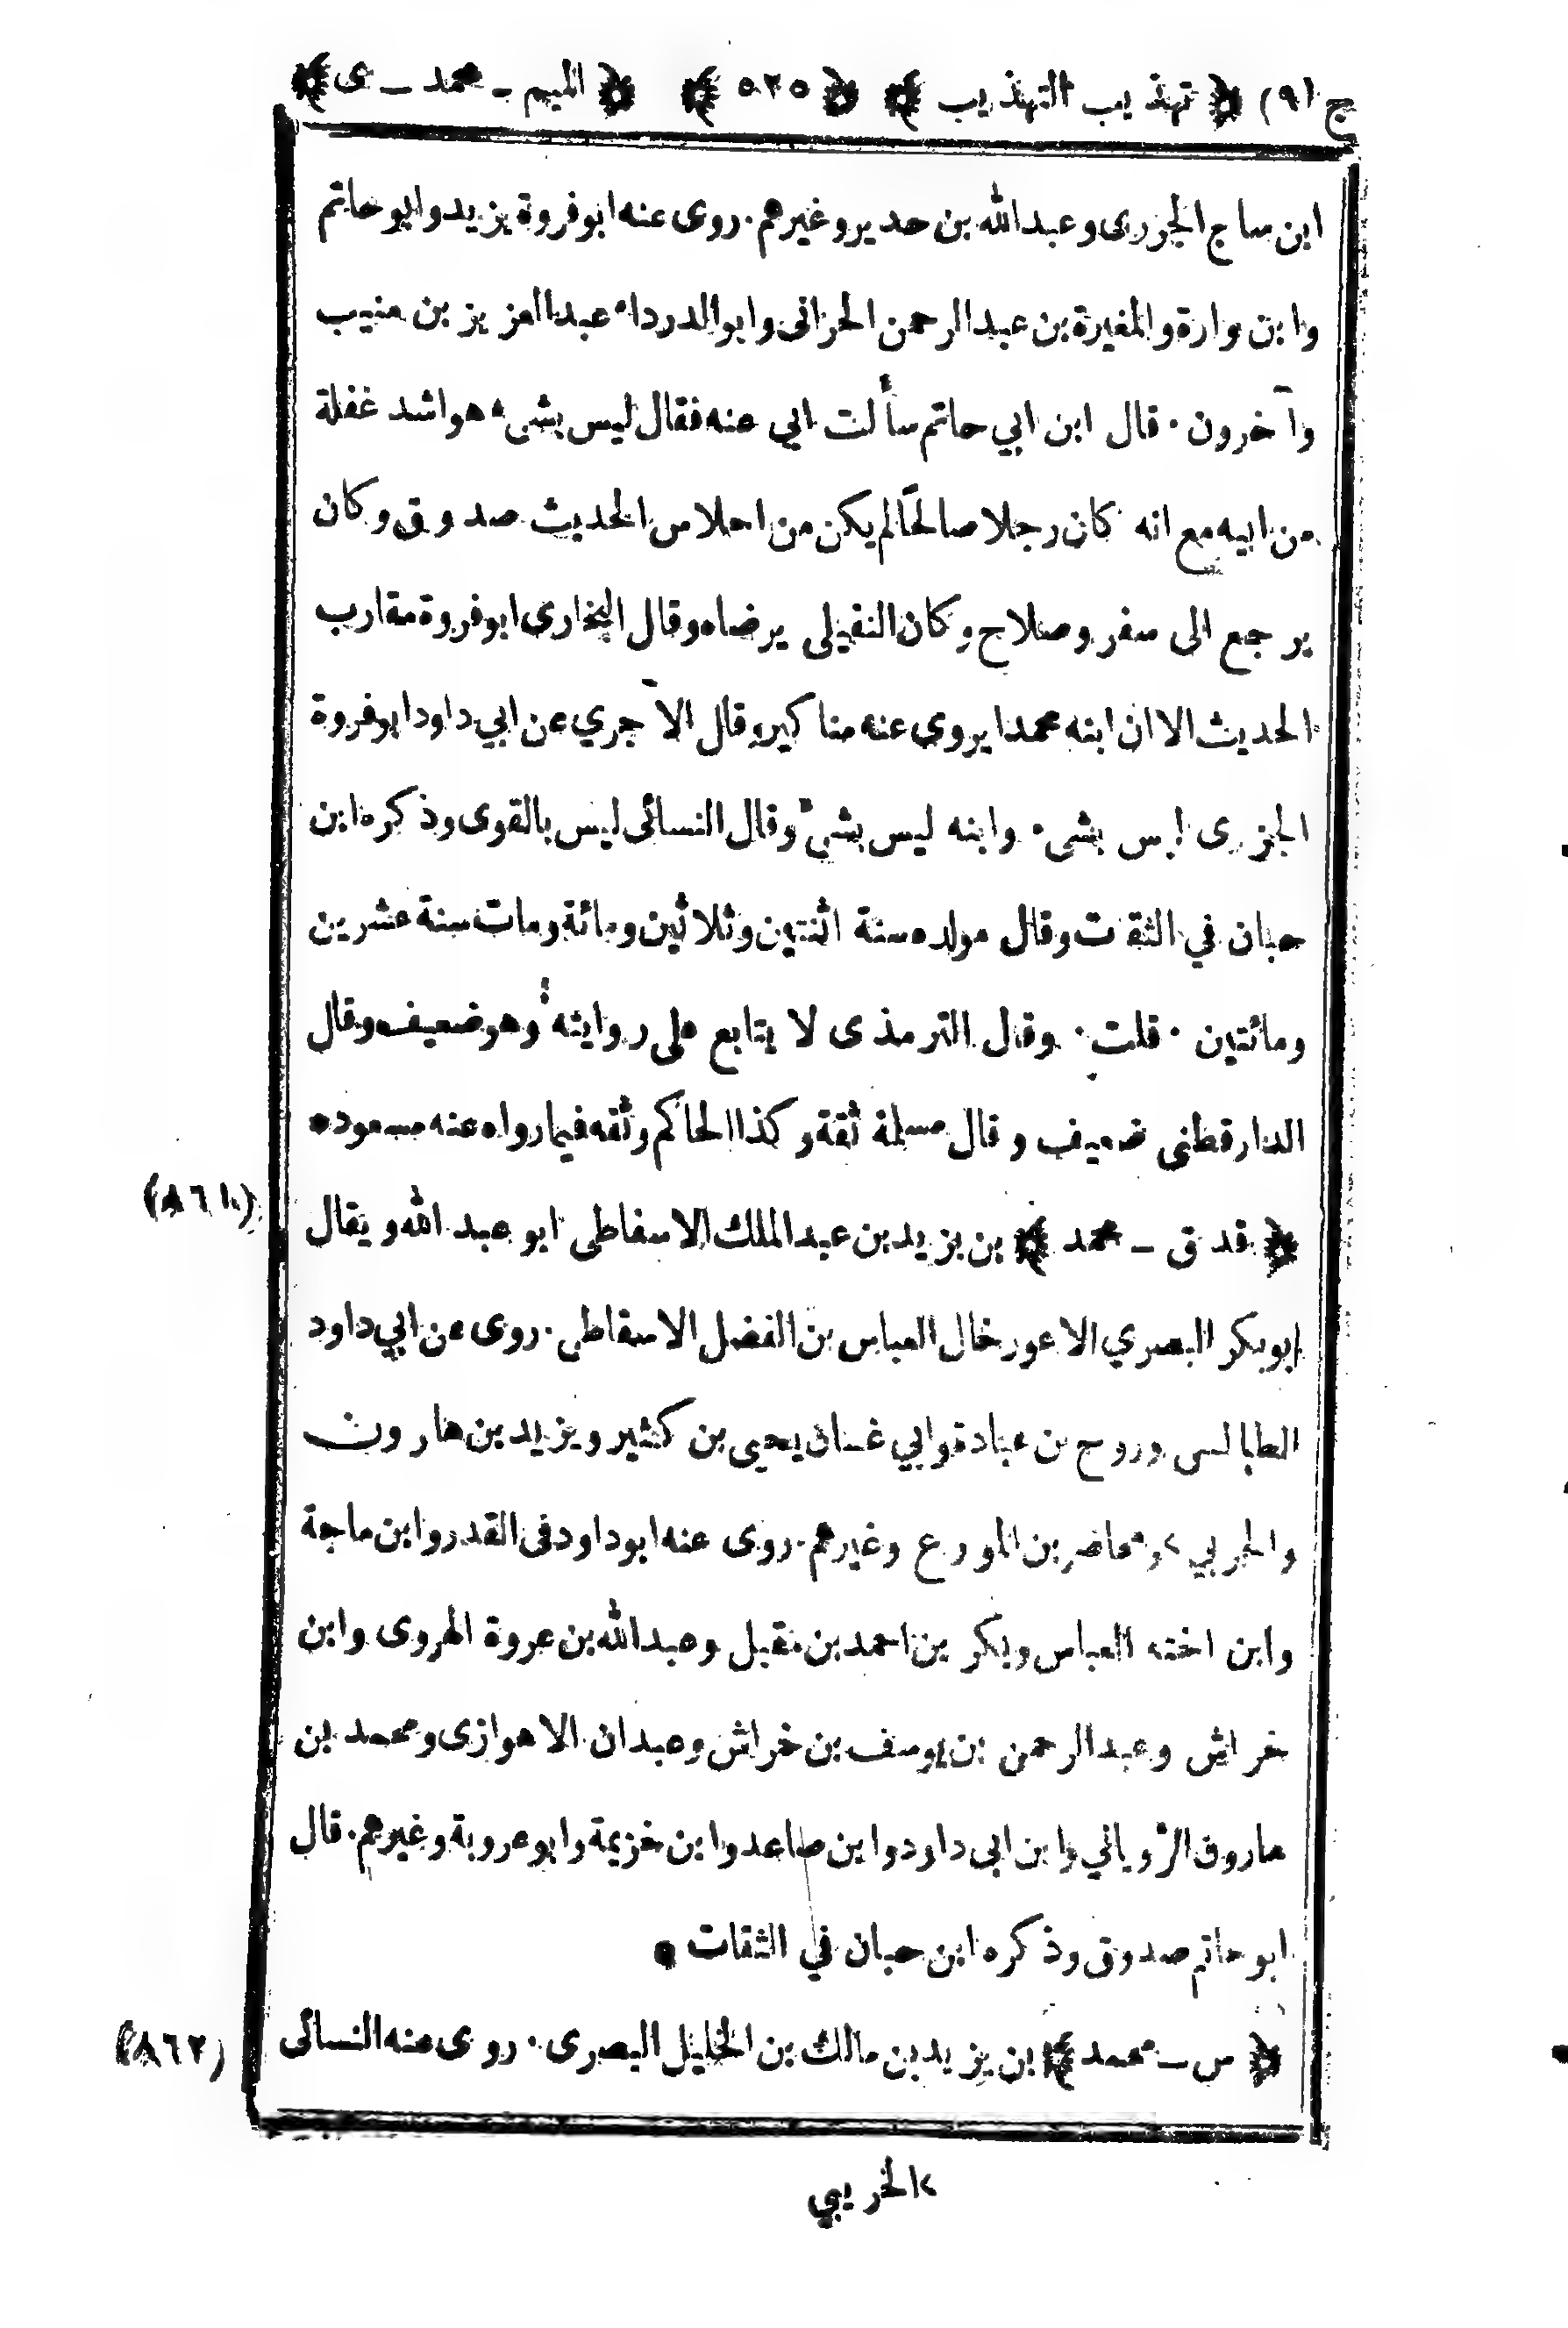 ج (٩) ﴿ تهذيب التهذيب ﴾ ﴿ ٥٢٥ ﴾ ﴿ الميم - محمد - ى ﴾
ابن ساج الجزرى وعبدالله بن حدير وغيرهم . روى عنه ابوفروة يزيد وابو حاتم
وابن وارة والمغيرة بن عبد الرحمن الحرانى وابو الدرداء عبد العزيز بن منيب
وآخرون . قال ابن ابي حاتم سألت ابي عنه فقال ليس بشىء هو اشد غفلة
من ابيه مع انه كان رجلا صالحًا لم يكن من احلاس الحديث صدوق وكان
يرجع الى سفر وصلاح وكان النفيلى يرضاه وقال البخارى ابو فروة مقارب
الحديث الا ان ابنه محمدا يروى عنه مناكير وقال الآجري عن ابي داود ابوفروة
الجزرى ليس بشىء وابنه ليس بشىء وقال النسائى ليس بالقوى وذكره ابن
حبان في الثقات وقال مولده سنة اثنتين وثلاثين ومائة ومات سنة عشرين
ومائتين . قلت . وقال الترمذى لا يتابع على روايته وهو ضعيف وقال
الدارقطنى ضعيف وقال مسلمة ثقة وكذا الحاكم وثقه فيما رواه عنه مسعود ●
﴿ قد ق - محمد ﴾ بن يزيد بن عبد الملك الاسفاطى ابو عبد الله ويقال
(٨٦١)
ابو بكر البصري الاعور خال العباس بن الفضل الاسفاطى . روى عن ابي داود
الطيالسى وروح بن عبادة وابي غسان يحيى بن كثير ويزيد بن هارون
والحربي > ومحاضر بن المورع وغيرهم . روى عنه ابو داود فى القدر وابن ماجة
وابن اخته العباس وبكر بن احمد بن مقبل وعبد الله بن عروة الهروى وابن
خراش وعبد الرحمن بن يوسف بن خراش وعبدان الاهوازى ومحمد بن
هارون الرُّوياني وابن ابى داود وابن صاعد وابن خزيمة وابو عروبة وغيرهم . قال
ابو حاتم صدوق وذكره ابن حبان في الثقات ●
﴿ س - محمد ﴾ بن يزيد بن مالك بن الخليل البصرى . روى عنه النسائى
(٨٦٢)
> الخريبي